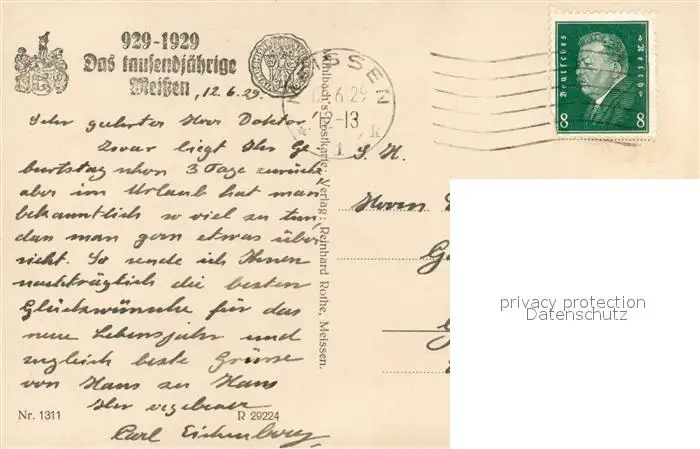 929-1929
Das tausendjährige
Meißen
12.6.29.
Sehr geehrter Herr Doktor!
Zwar liegt Ihr Ge
burtstag schon 3 Tage zurück
aber im Urlaub hat man
bekanntlich so viel zu tun,
dass man gern etwas über
sieht. So sende ich Ihnen
nachträglich die besten
Glückwünsche für das
neue Lebensjahr und
zugleich beste Grüsse
von Haus zu Haus
Ihr ergebener
Carl Eichenberg
Nr. 1311
R 29224
Mühlbach's Postkarte; Verlag: Reinhard Rothe, Meissen.
MEISSEN
12.6.29
-13
1 k
Deutsches Reich
8 8
S. H.
Herrn
privacy protection
Datenschutz